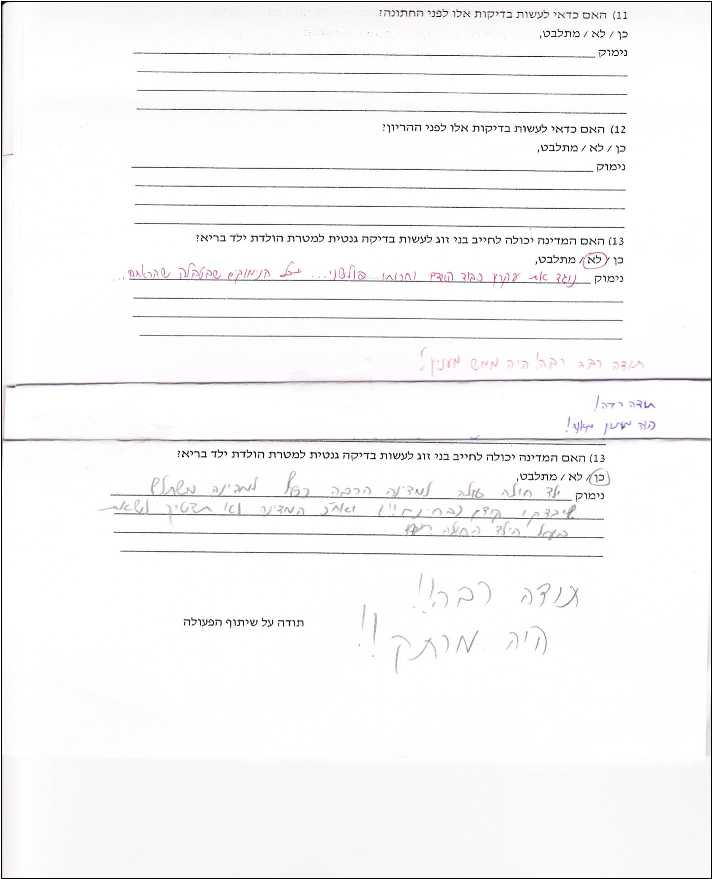 11) האם כדאי לעשות בדיקות אלו לפני החתונה?
כן / לא / מתלבט,
נימוק
12) האם כדאי לעשות בדיקות אלו לפני ההריון?
כן / לא / מתלבט,
נימוק
13) האם המדינה יכולה לחייב בני זוג לעשות בדיקה גנטית למטרת הולדת ילד בריא?
כן / לא / מתלבט,
נימוק נוגד את עקרון כבוד האדם וחרותו פולשני... כל הנימוקים שבטבלה שהראתם...
תודה רבה רבה! היה ממש מעניין!
תודה רבה!
היה מעניין מאוד!
13) האם המדינה יכולה לחייב בני זוג לעשות בדיקה גנטית למטרת הולדת ילד בריא?
כן / לא / מתלבט,
נימוק ילד חולה עולה למדינה הרבה כסף למדינה משתלם
שיבדקו קודם ואח"כ המדינה לא תצטרך לשאת
בעול הילד החולה
תודה רבה!!
היה מרתק!!
תודה על שיתוף הפעולה